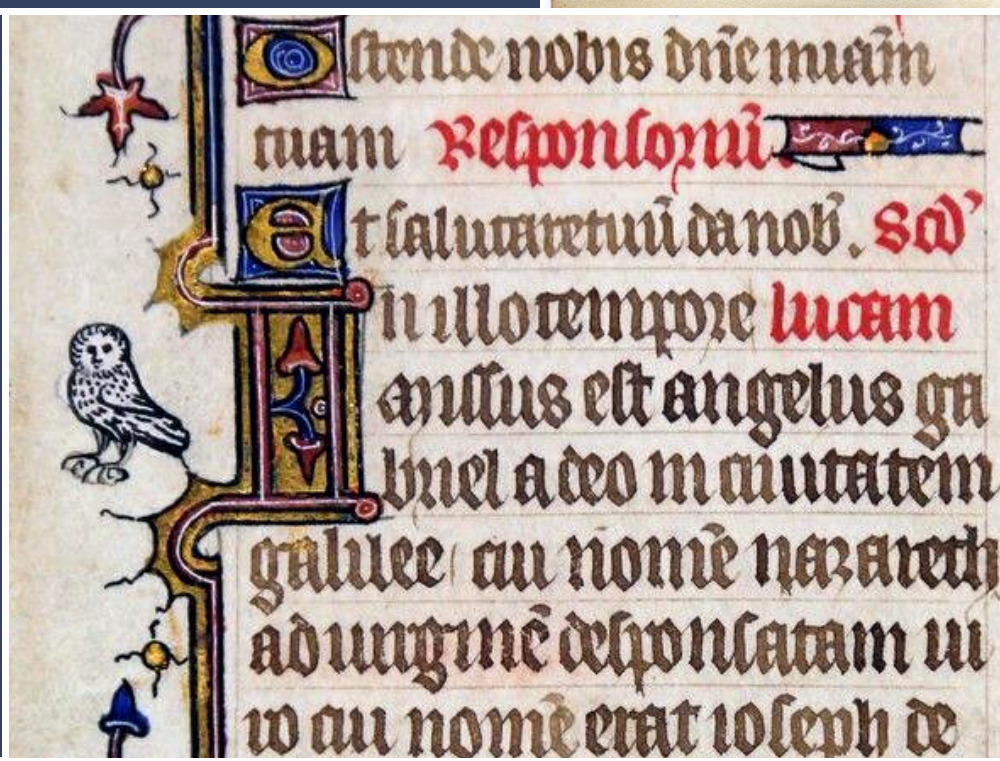 Ostende nobis dn̄e miām
tuam Responsoriū.
Et salutare tuū da nob̄. Scd̄'
In illo tempore lucam
missus est angelus ga
briel a deo in ciuitatem
galilee cui nomē nazareth
ad uirginē desponsatam ui
ro cui nomē erat ioseph de